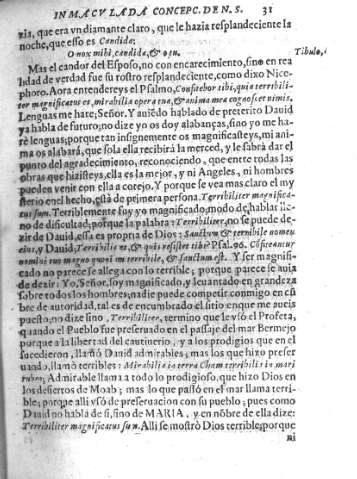 INMACVLADA CONCEPC. DE N. S. 31
zia, que era vn diamante claro, que le hazia resplandeciente la
noche, que esso es Candida:
O nox mihi candida, &
Tibulo,
Mas el candor del Esposo, no con encarecimiento, sino en rea
lidad de verdad fue su rostro resplandeciente, como dixo Nice-
phoro. Aora entendereys el Psalmo, Confitebor tibi, quia terribili-
ter magnificatus es, mirabilia opera tua, & anima mea cognoscet nimis.
Lenguas me hate; Señor. Y auiẽdo hablado de preterito Dauid
ya habla de futuro; no dize yo os doy alabanças, sino yo me ha-
rè lenguas; porque tan insignemente os magnificasteys, mi ani-
ma os alabarà, que sola ella recibirà la merced, y le sabrà dar el
punto del agradecimiento, reconociendo, que entre todas las
obras que hizisteys, ella es la mejor, y ni Angeles, ni hombres
pueden venir con ella a cotejo. Y porque se vea mas claro el my
sterio en el hecho, està de primera persona. Terribiliter magnifica-
tus sum. Terriblemente soy yo magnificado, modo de hablar lle-
no de dificultad, porque la palabra: Terribiliter, no se puede de-
zir de Dauid, essa es propria de Dios: Sanctum & terribile nomen
eius, y Dauid, Terribilis es, & quis resistet tibi? Psal. 96. Confiteantur
nomini tuo magno quoniam terribile, & sanctum est. Y ser magnifi-
cado no parece se allega con lo terrible; porque parece se auia
de dezir: Yo, Señor, soy magnificado, y leuantado en grandeza
sobre todos los hombres, nadie puede competir conmigo en cũ
bre de autoridad, tal es de encumbrado el sitio en que me aueis
puesto, no dize sino, Terribiliter, termino que le vsò el Profeta,
quando el Pueblo fue preseruado en el passaje del mar Bermejo
porque a la libertad del cautiuerio, y a los prodigios que en el
sucedieron, llamò Dauid admirables; mas los que hizo preser
uando, llamò terribles: Mirabilia in terra Cham terribilia in mari
rubro; Admirable llama a todo lo prodigioso, que hizo Dios en
los desiertos de Moab; mas lo que passò en el mar llama terri-
ble; porque alli vsò de preseruacion con su pueblo; pues como
Dauid no habla de si, sino de MARIA, y en nõbre de ella dize:
Terribiliter magnificatus sum. Alli se mostrò Dios terrible; porque
ni